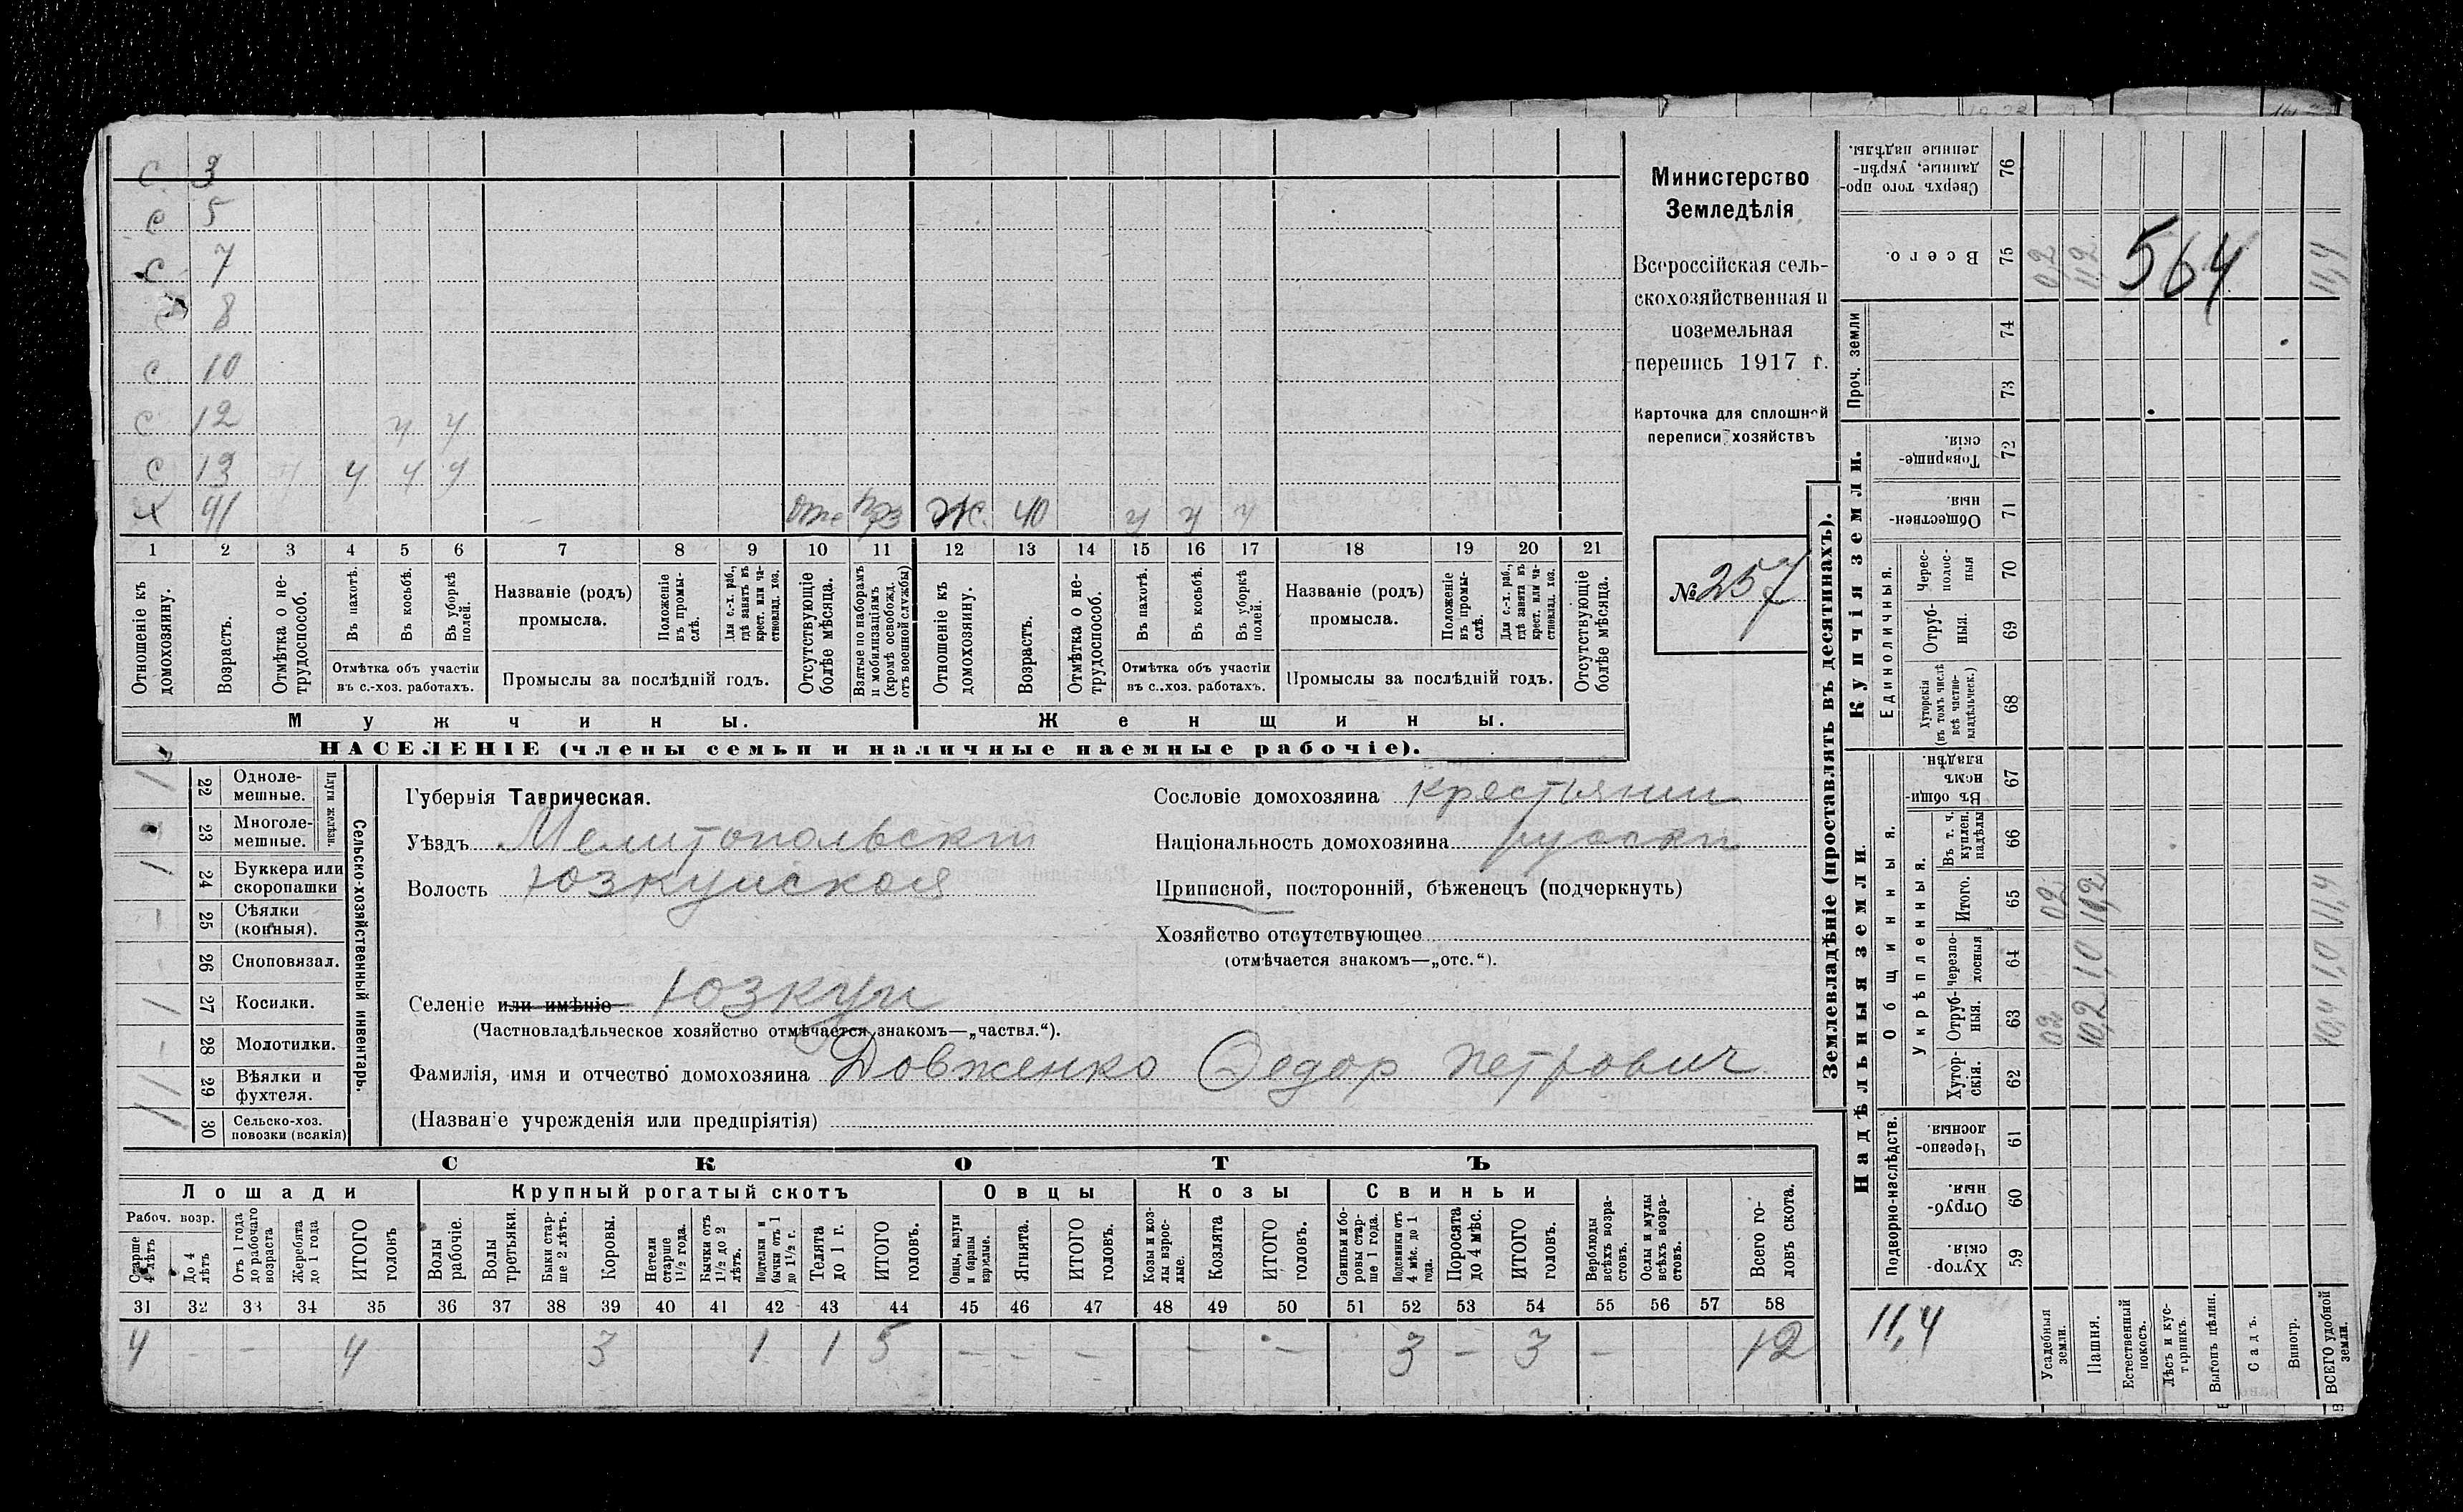 С 3
С 5
С 7
С 8
С 10
С 12 ч ч
С 13 ч ч ч ч
Х 41 отс Ж. 40 ч ч ч
1 2 3 4 5 6 7 8 9 10 11 12 13 14 15 16 17 18 19 20 21
Отношеніе къ домохозяину.
Возрастъ.
Отмѣтка о не-трудоспособ.
Въ пахотѣ.
Въ косьбѣ.
Въ уборкѣ полей.
Отмѣтка объ участіи въ с.-хоз. работахъ.
Названіе (родъ) промысла.
Положеніе въ промы-слѣ.
Для с.-х. раб., гдѣ занятъ въ крест. или ча-стновлад. хоз.
Промыслы за послѣдній годъ.
Отсутствующіе болѣе мѣсяца.
Взятые по наборамъ и мобилизаціямъ (кромѣ освобожд. отъ военной службы)
Отношеніе къ домохозяину.
Возрастъ.
Отмѣтка о не-трудоспособ.
Въ пахотѣ.
Въ косьбѣ.
Въ уборкѣ полей.
Отмѣтка объ участіи въ с..хоз. работахъ.
Названіе (родъ) промысла.
Положеніе въ промы-слѣ.
Для с.-х. раб., гдѣ занята въ крест. или ча-стновлад. хоз.
Промыслы за послѣдній годъ.
Отсутствующіе болѣе мѣсяца.
Мужчины. Женщины.
НАСЕЛЕНІЕ (члены семьи и наличные наемные рабочіе).
Министерство
Земледѣлія
Всероссійская сель-
скохозяйственная и
поземельная
перепись 1917 г.
Карточка для сплошной
переписи хозяйствъ
№ 257
Сельско-хозяйственный инвентарь.
Плуги желѣзн.
1 22 Одноле-мешные.
23 Многоле-мешные.
1 24 Буккера или скоропашки
- 25 Сѣялки (конныя).
- 26 Сноповязал.
1 27 Косилки.
- 28 Молотилки.
1 29 Вѣялки и фухтеля.
30 Сельско-хоз. повозки (всякія)
Губернія Таврическая.
Уѣздъ Мелитопольскій
Волость Юзкуйская
Селеніе или имѣніе Юзкуи
(Частновладѣльческое хозяйство отмѣчается знакомъ—„частвл.“).
Фамилія, имя и отчество домохозяина Довженко Федор Петрович
(Названіе учрежденія или предпріятія)
Сословіе домохозяина крестьянин
Національность домохозяина русски
Приписной, посторонній, бѣженецъ (подчеркнуть)
Хозяйство отсутствующее
(отмѣчается знакомъ—„отс.“).
СКОТЪ
Лошади Крупный рогатый скотъ Овцы Козы Свиньи
Рабоч. возр.
Старше 4 лѣтъ
До 4 лѣтъ
Отъ 1 года до рабочаго возраста
Жеребята до 1 года
ИТОГО головъ
Волы рабочіе.
Волы третьяки.
Быки стар-ше 2 лѣтъ.
Коровы.
Нетели старше 1½ года.
Бычки отъ 1½ до 2 лѣтъ.
Подтелки и бычки отъ 1 до 1½ г.
Телята до 1 г.
ИТОГО головъ.
Овцы, валухи и бараны взрослые.
Ягнята.
ИТОГО головъ.
Козы и коз-лы взрос-лые.
Козлята
ИТОГО головъ.
Свиньи и бо-ровы стар-ше 1 года.
Подсвинки отъ 4 мѣс. до 1 года.
Поросята до 4 мѣс.
ИТОГО головъ.
Верблюды всѣхъ возра-стовъ.
Ослы и мулы всѣхъ возра-стовъ.
Всего го-ловъ скота.
31 32 33 34 35 36 37 38 39 40 41 42 43 44 45 46 47 48 49 50 51 52 53 54 55 56 57 58
4 - - 4 3 1 1 5 - - - - - 3 - 3 - 12
Землевладѣніе (проставлять въ десятинахъ).
Купчія земли.
Надѣльныя земли.
Сверхъ того про-данные, укрѣп-ленные надѣлы. 76
Всего. 75 0,2 11,2 11,4
564
Проч. земли 74
73
Товарище-скія. 72
Обществен-ныя. 71
Единоличныя.
Черес-полос-ныя 70
Отруб-ныя. 69
Хуторскія (въ томъ числѣ всѣ частно-владѣльческ.) 68
Общинныя.
Въ общи-нномъ владѣн. 67
Укрѣпленныя.
Въ т. ч. куплен. надѣлы 66
Итого. 65 02 11,2 11,4
черезпо-лосныя 64 1,0 1,0
Отруб-ныя. 63 02 10,2 10,4
Хутор-скія. 62
Подворно-наслѣдств.
Черезпо-лосныя 61
Отруб-ныя. 60
Хутор-скія. 59
11,4
Усадебныя земли.
Пашня.
Естественный покосъ.
Лѣсъ и кус-тарникъ.
Выгонъ цѣлин.
Садъ.
Виногр.
ВСЕГО удобной земли.